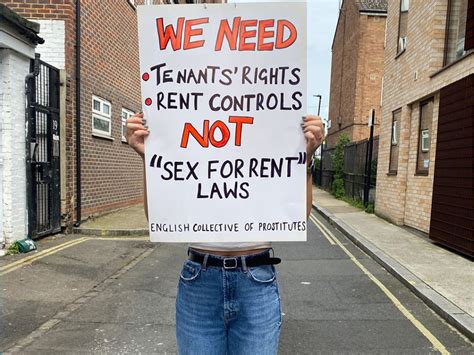 WE NEED
• TENANTS' RIGHTS
• RENT CONTROLS
NOT
"SEX FOR RENT"
LAWS
ENGLISH COLLECTIVE OF PROSTITUTES